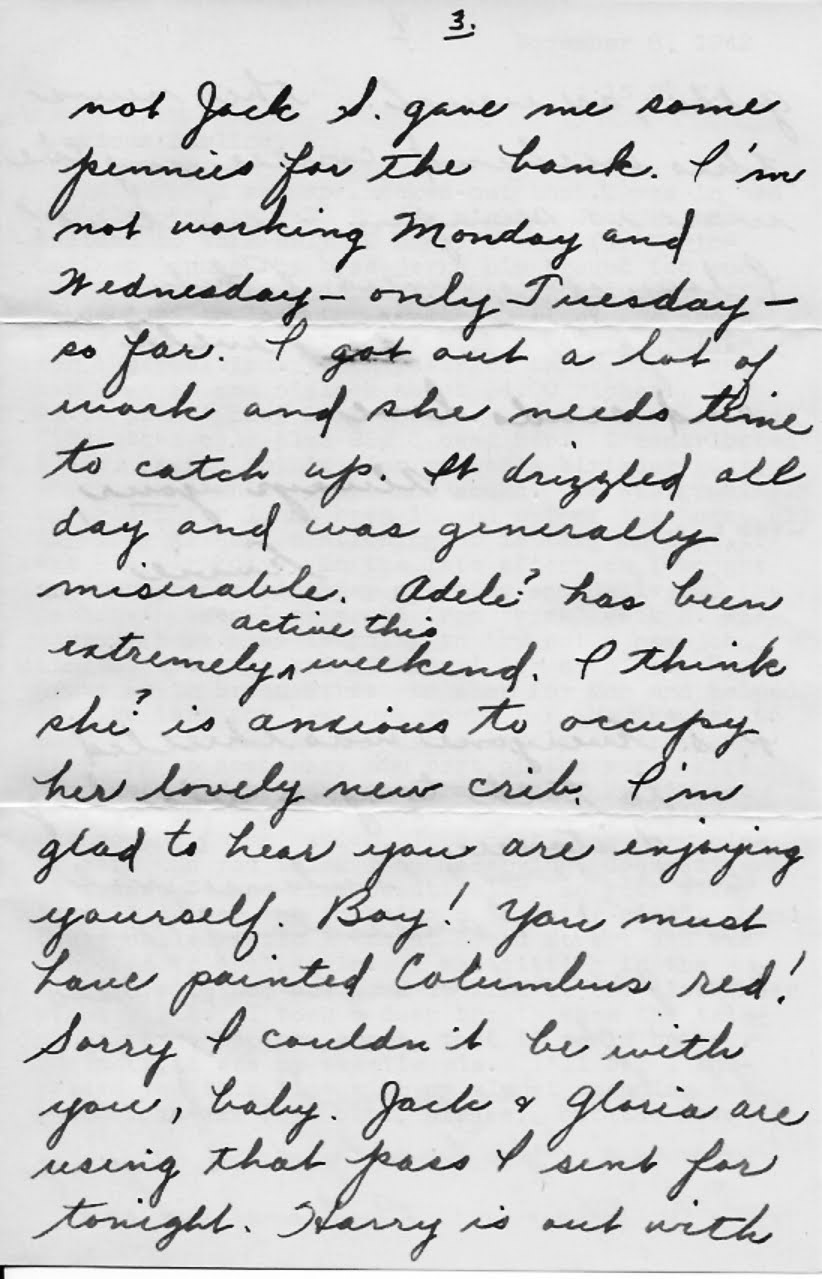 3.
not Jack S. gave me some
pennies for the bank. I'm
not working Monday and
Wednesday – only Tuesday –
so far. I got out a lot of
work and she needs time
to catch up. It drizzled all
day and was generally
miserable. Adele? has been
active this
extremely ^ weekend. I think
she? is anxious to occupy
her lovely new crib. I'm
glad to hear you are enjoying
yourself. Boy! You must
have painted Columbus red!
Sorry I couldn't be with
you, baby. Jack & Gloria are
using that pass I sent for
tonight. Harry is out with